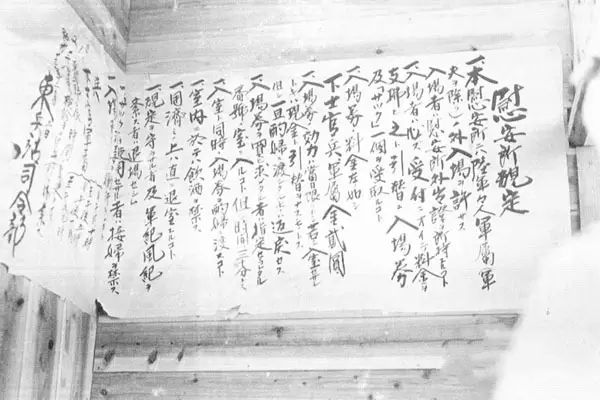 慰安所規定
一、本慰安所ニハ陸軍々人軍属(軍
夫ヲ除ク)ノ外入場ヲ許サス
入場者ハ慰安所外出証ヲ所持スルコト
一、入場者ハ必ス受付ニオイテ料金ヲ
支拂ヒ之ト引替ニ入場券
及「サック」一個ヲ受取ルコト
一、入場券ノ料金左ノ如シ
下士官、兵、軍属金貳圓
一、入場券ノ効力ハ当日限リトシ若シ入室セサ
トキハ現金ト引替ヲナスモノトス
但シ一旦酌婦ニ渡シタルモノハ返戻セス
一、入場券ヲ買ヒ求メタル者ハ指定セラレタル
番号ノ室ニ入ルコト但シ時間ハ三十分トス
一、入室ト同時ニ入場券ヲ酌婦ニ渡スコト
一、室内ニ於テハ飲酒ヲ禁ス
一、用済ミノ上ハ直ニ退室スルコト
一、規定ヲ守ラサル者及軍紀風紀ヲ
紊ス者ハ退場セシム
一、サックヲ使用セサル者ハ接婦ヲ禁ス
東兵站司令部